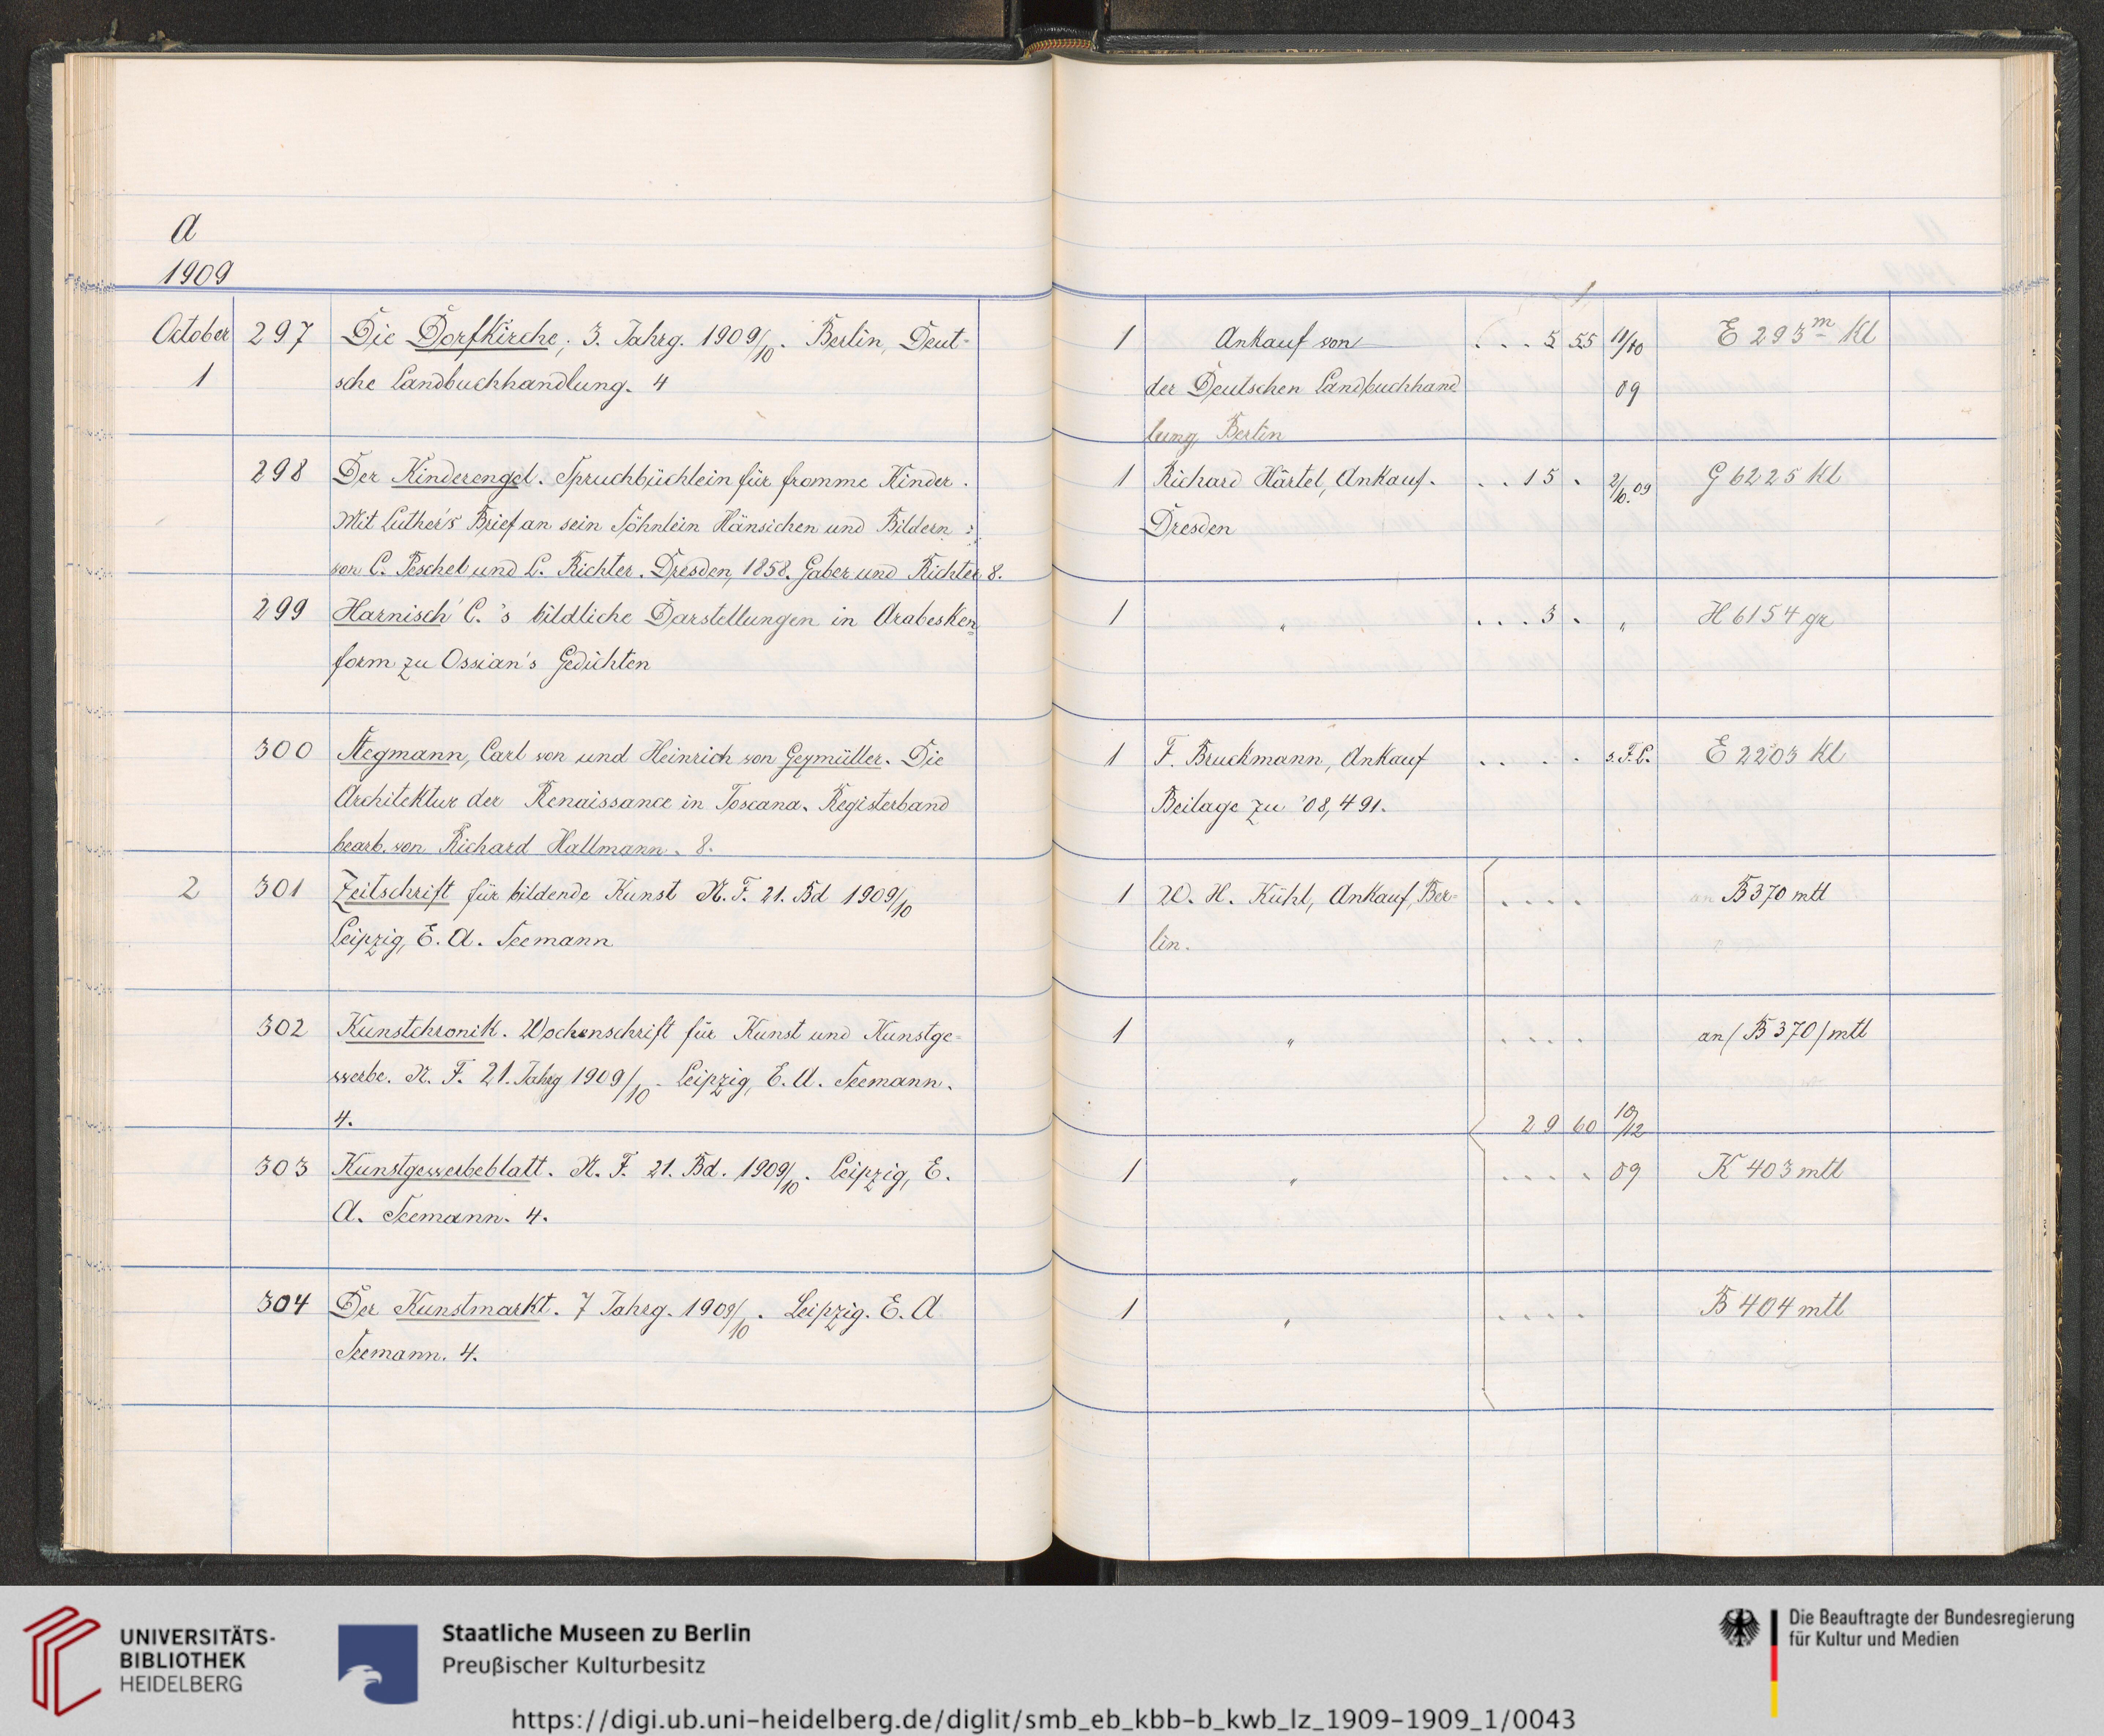 A
1909
October 297 Die Dorfkirche; 3. Jahrg. 1909/10. Berlin, Deut-
1 sche Landbuchhandlung. 4
298 Der Kinderengel. Spruchbüchlein für fromme Kinder.
Mit Luther's Brief an sein Söhnlein Hänsichen und Bildern
von C. Peschel und L. Richter. Dresden, 1858. Gaber und Richter 8.
299 Harnisch' C. 's bildliche Darstellungen in Arabesken
form zu Ossian's Gedichten
300 Stegmann, Carl von und Heinrich von Geymüller. Die
Architektur der Renaissance in Toscana. Registerband
bearb. von Richard Hallmann. 8.
2 301 Zeitschrift für bildende Kunst N. F. 21. Bd 1909/10
Leipzig, E. A. Seemann
302 Kunstchronik. Wochenschrift für Kunst und Kunstge-
werbe. N. F. 21. Jahrg 1909/10. Leipzig, E. A. Seemann.
4.
303 Kunstgewerbeblatt. N. F. 21. Bd. 1909/10. Leipzig, E.
A. Seemann. 4.
304 Der Kunstmarkt. 7 Jahrg. 1909/10. Leipzig. E. A
Seemann. 4.
1 Ankauf von . . . 5 55 11/10 E 293m Kl
der Deutschen Landbuchhand 09
lung, Berlin
1 Richard Härtel, Ankauf. . . 15 . 2/10.09 G 6225 Kl
Dresden
1 " . . . 3 . " H 6154 gr
1 F. Bruckmann, Ankauf . . . . s. F. L. E 2203 Kl
Beilage zu '08, 491.
1 W. H. Kühl, Ankauf, Ber- . . . . an B 370 mtl
lin.
1 " . . . . an (B 370) mtl
29 60 10/12
1 " . . . . 09 K 403 mtl
1 " . . . . B 404 mtl
UNIVERSITÄTS-
BIBLIOTHEK
HEIDELBERG
Staatliche Museen zu Berlin
Preußischer Kulturbesitz
Die Beauftragte der Bundesregierung
für Kultur und Medien
https://digi.ub.uni-heidelberg.de/diglit/smb_eb_kbb-b_kwb_lz_1909-1909_1/0043